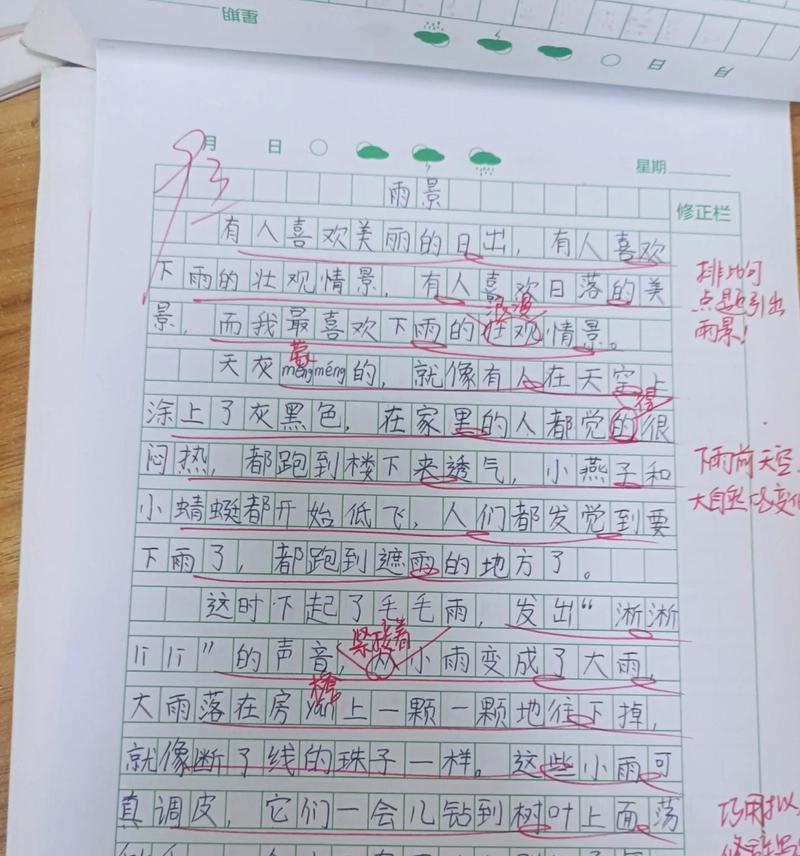 星期
日
月
月 日
星期
93
修正栏
雨景
有人喜欢美丽的日出，有人喜欢
下雨的壮观情景，有人喜欢日落的美
浪漫
景，而我最喜欢下雨的壮观情景。
排比句
点题引出
雨景！
蒙
天灰méngméng的，就像有人在天空上
得
涂上了灰黑色，在家里的人都觉的很
闷热，都跑到楼下来透气，小燕子和
下雨前天空
大自然的变化
小蜻蜓都开始低飞，人们都发觉到要
下雨了，都跑到遮雨的地方了。
这时下起了毛毛雨，发出“淅淅
紧接着
行行”的声音，从小雨变成了大雨，
檐
大雨落在房yán上一颗一颗地往下掉，
就像断了线的珠子一样。这些小雨可
真调皮，它们一会儿钻到树叶上面荡
巧用拟人